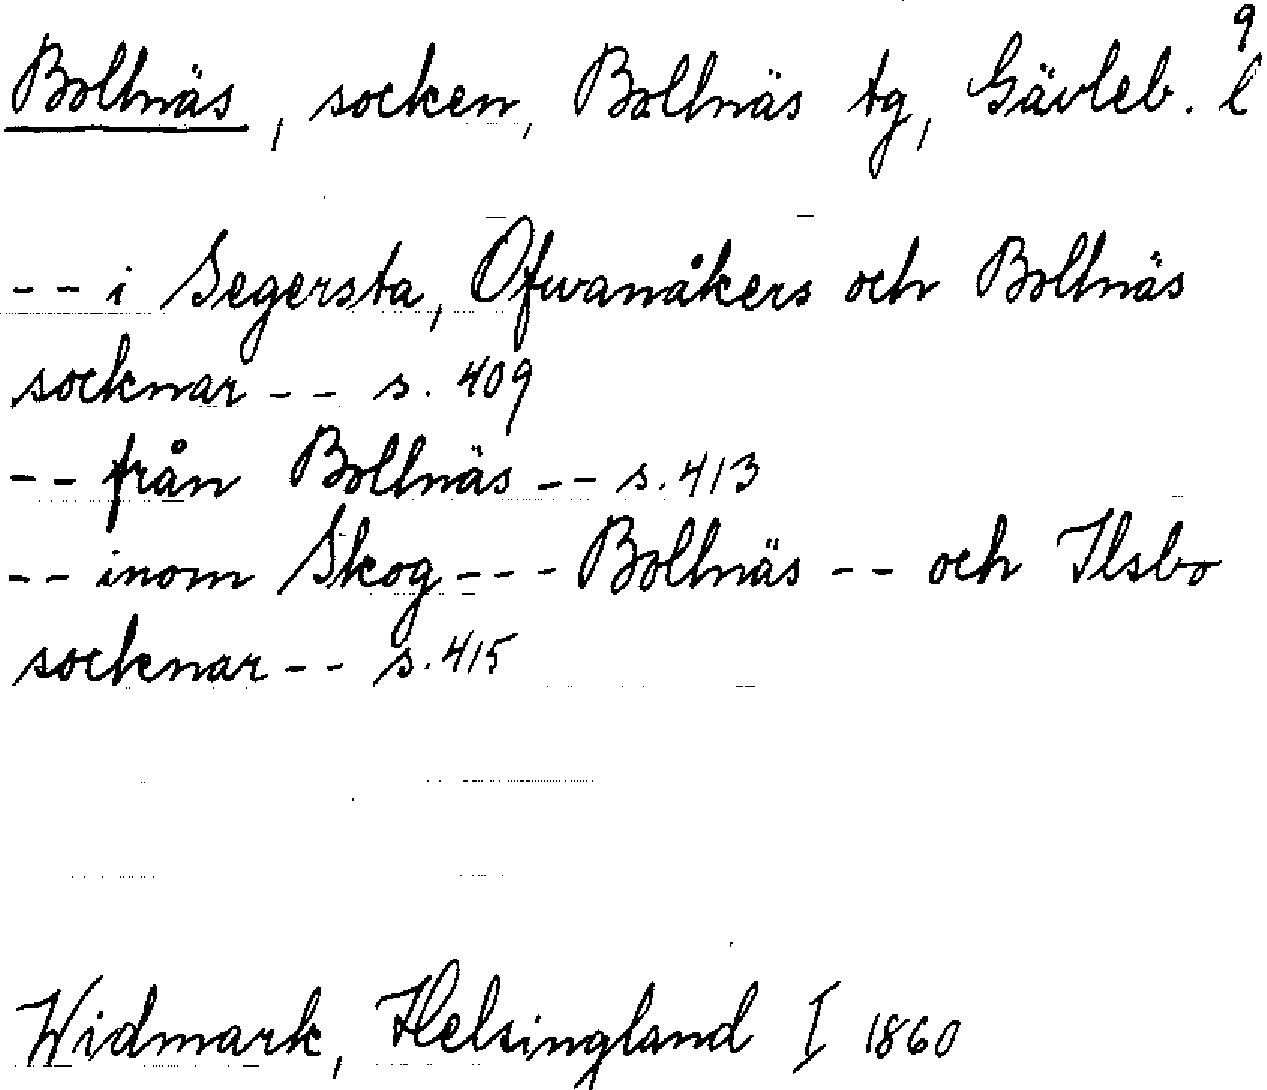 Bollnäs, socken, Bollnäs tg, Gävleb. l
9
-- i Segersta, Ofwanåkers och Bollnäs
socknar -- s. 409
-- från Bollnäs -- s. 413
-- inom Skog --- Bollnäs -- och Ilsbo
socknar -- s. 415
Widmark, Helsingland I 1860